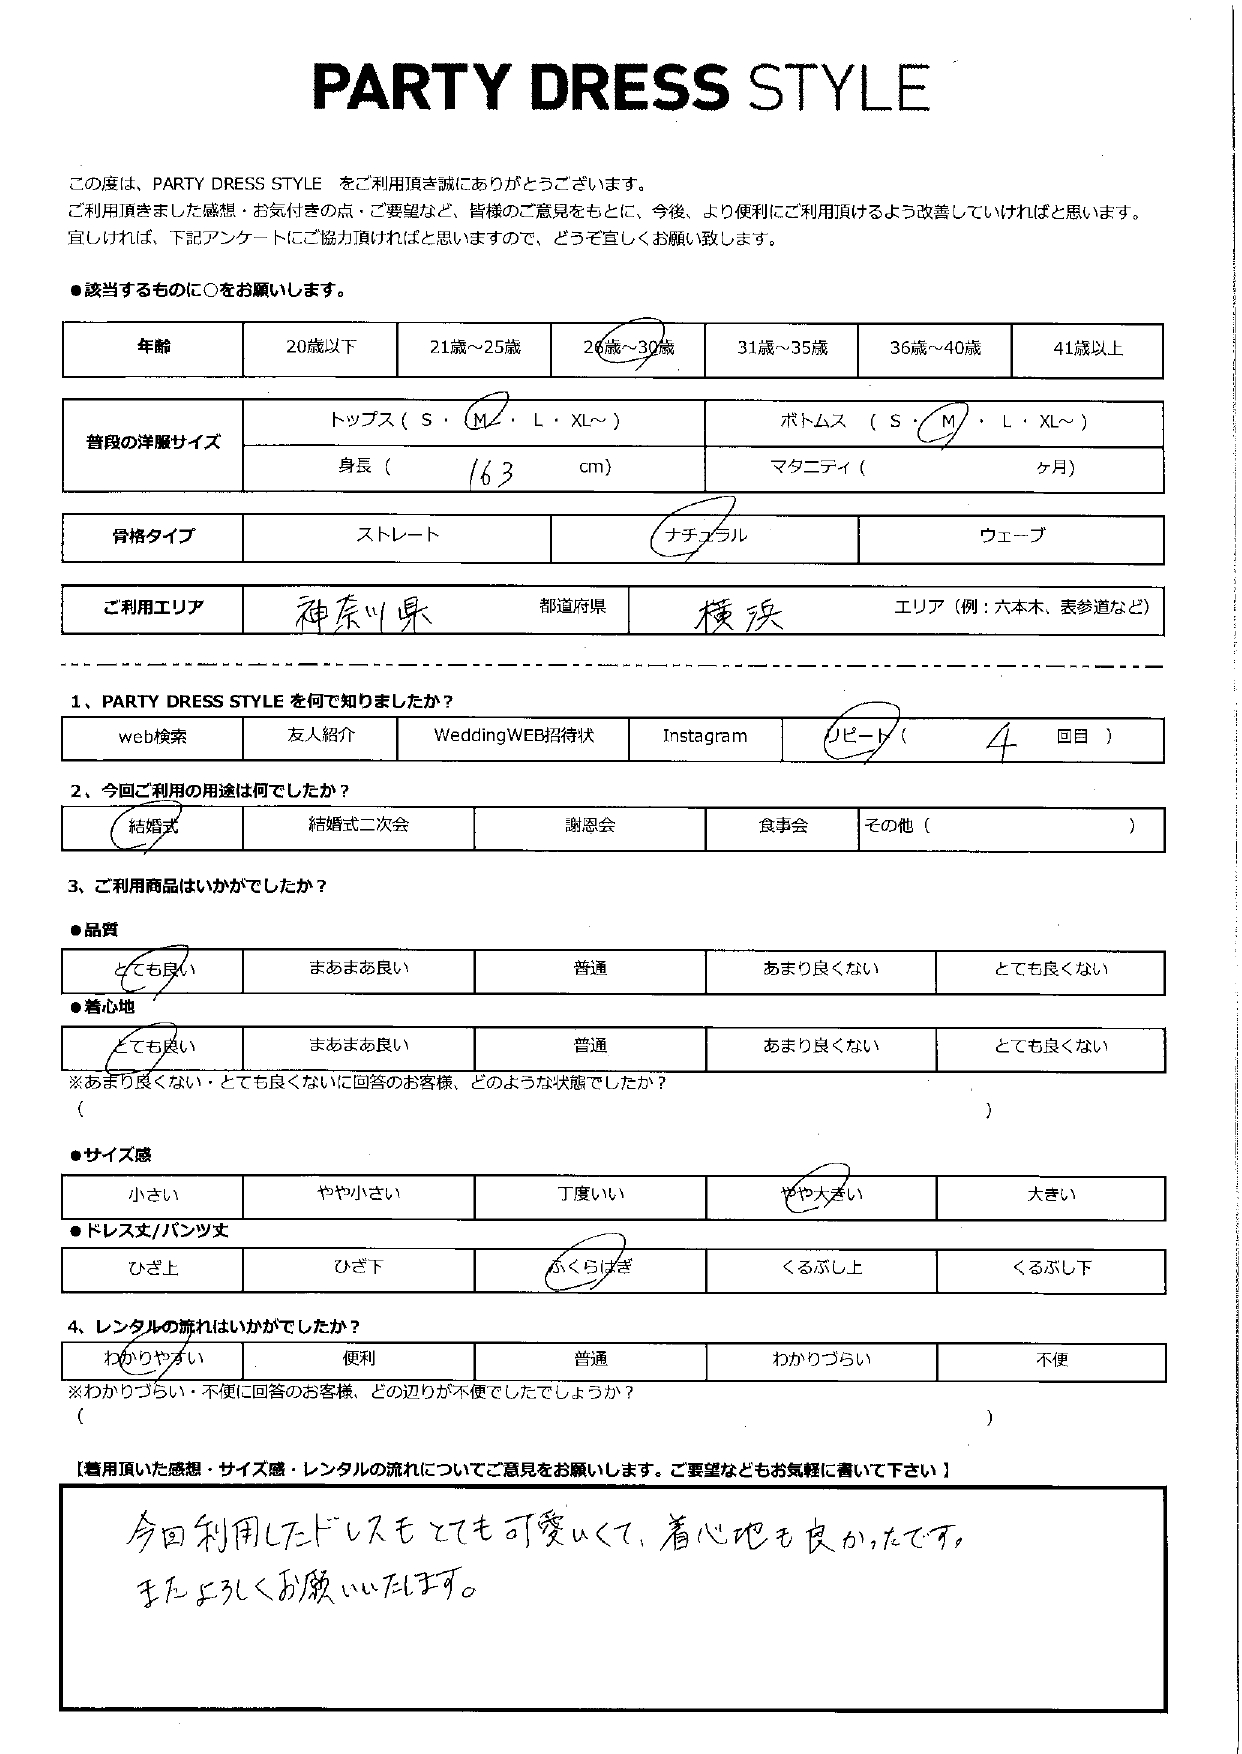 PARTY DRESS STYLE
この度は、PARTY DRESS STYLE をご利用頂き誠にありがとうございます。
ご利用頂きました感想・お気付きの点・ご要望など、皆様のご意見をもとに、今後、より便利にご利用頂けるよう改善していければと思います。
宜しければ、下記アンケートにご協力頂ければと思いますので、どうぞ宜しくお願い致します。
●該当するものに○をお願いします。
年齢 20歳以下 21歳～25歳 26歳～30歳 31歳～35歳 36歳～40歳 41歳以上
普段の洋服サイズ トップス ( S ・ M ・ L ・ XL～ ) ボトムス ( S ・ M ・ L ・ XL～ )
身長 ( 163 cm) マタニティ ( ヶ月)
骨格タイプ ストレート ナチュラル ウェーブ
ご利用エリア 神奈川県 都道府県 横浜 エリア（例：六本木、表参道など）
1、PARTY DRESS STYLE を何で知りましたか？
web検索 友人紹介 WeddingWEB招待状 Instagram リピート ( 4 回目 )
2、今回ご利用の用途は何でしたか？
結婚式 結婚式二次会 謝恩会 食事会 その他 ( )
3、ご利用商品はいかがでしたか？
●品質
とても良い まあまあ良い 普通 あまり良くない とても良くない
●着心地
とても良い まあまあ良い 普通 あまり良くない とても良くない
※あまり良くない・とても良くないに回答のお客様、どのような状態でしたか？
( )
●サイズ感
小さい やや小さい 丁度いい やや大きい 大きい
●ドレス丈/パンツ丈
ひざ上 ひざ下 ふくらはぎ くるぶし上 くるぶし下
4、レンタルの流れはいかがでしたか？
わかりやすい 便利 普通 わかりづらい 不便
※わかりづらい・不便に回答のお客様、どの辺りが不便でしたでしょうか？
( )
【着用頂いた感想・サイズ感・レンタルの流れについてご意見をお願いします。ご要望などもお気軽に書いて下さい】
今回利用したドレスもとても可愛いくて、着心地も良かったです。
またよろしくお願いいたします。